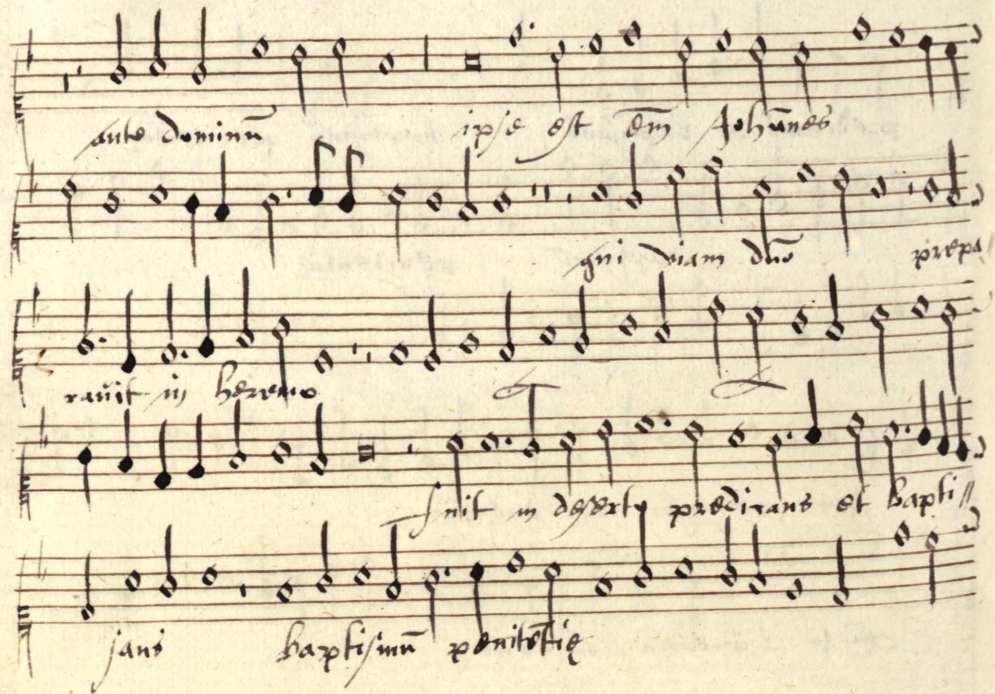 ante dominū ipse est em̄ Joh̄anes
qui viam dn̄o prepa
rauit in heremo
fuit in deserto predicans et bapti//
sans baptismū penitētię